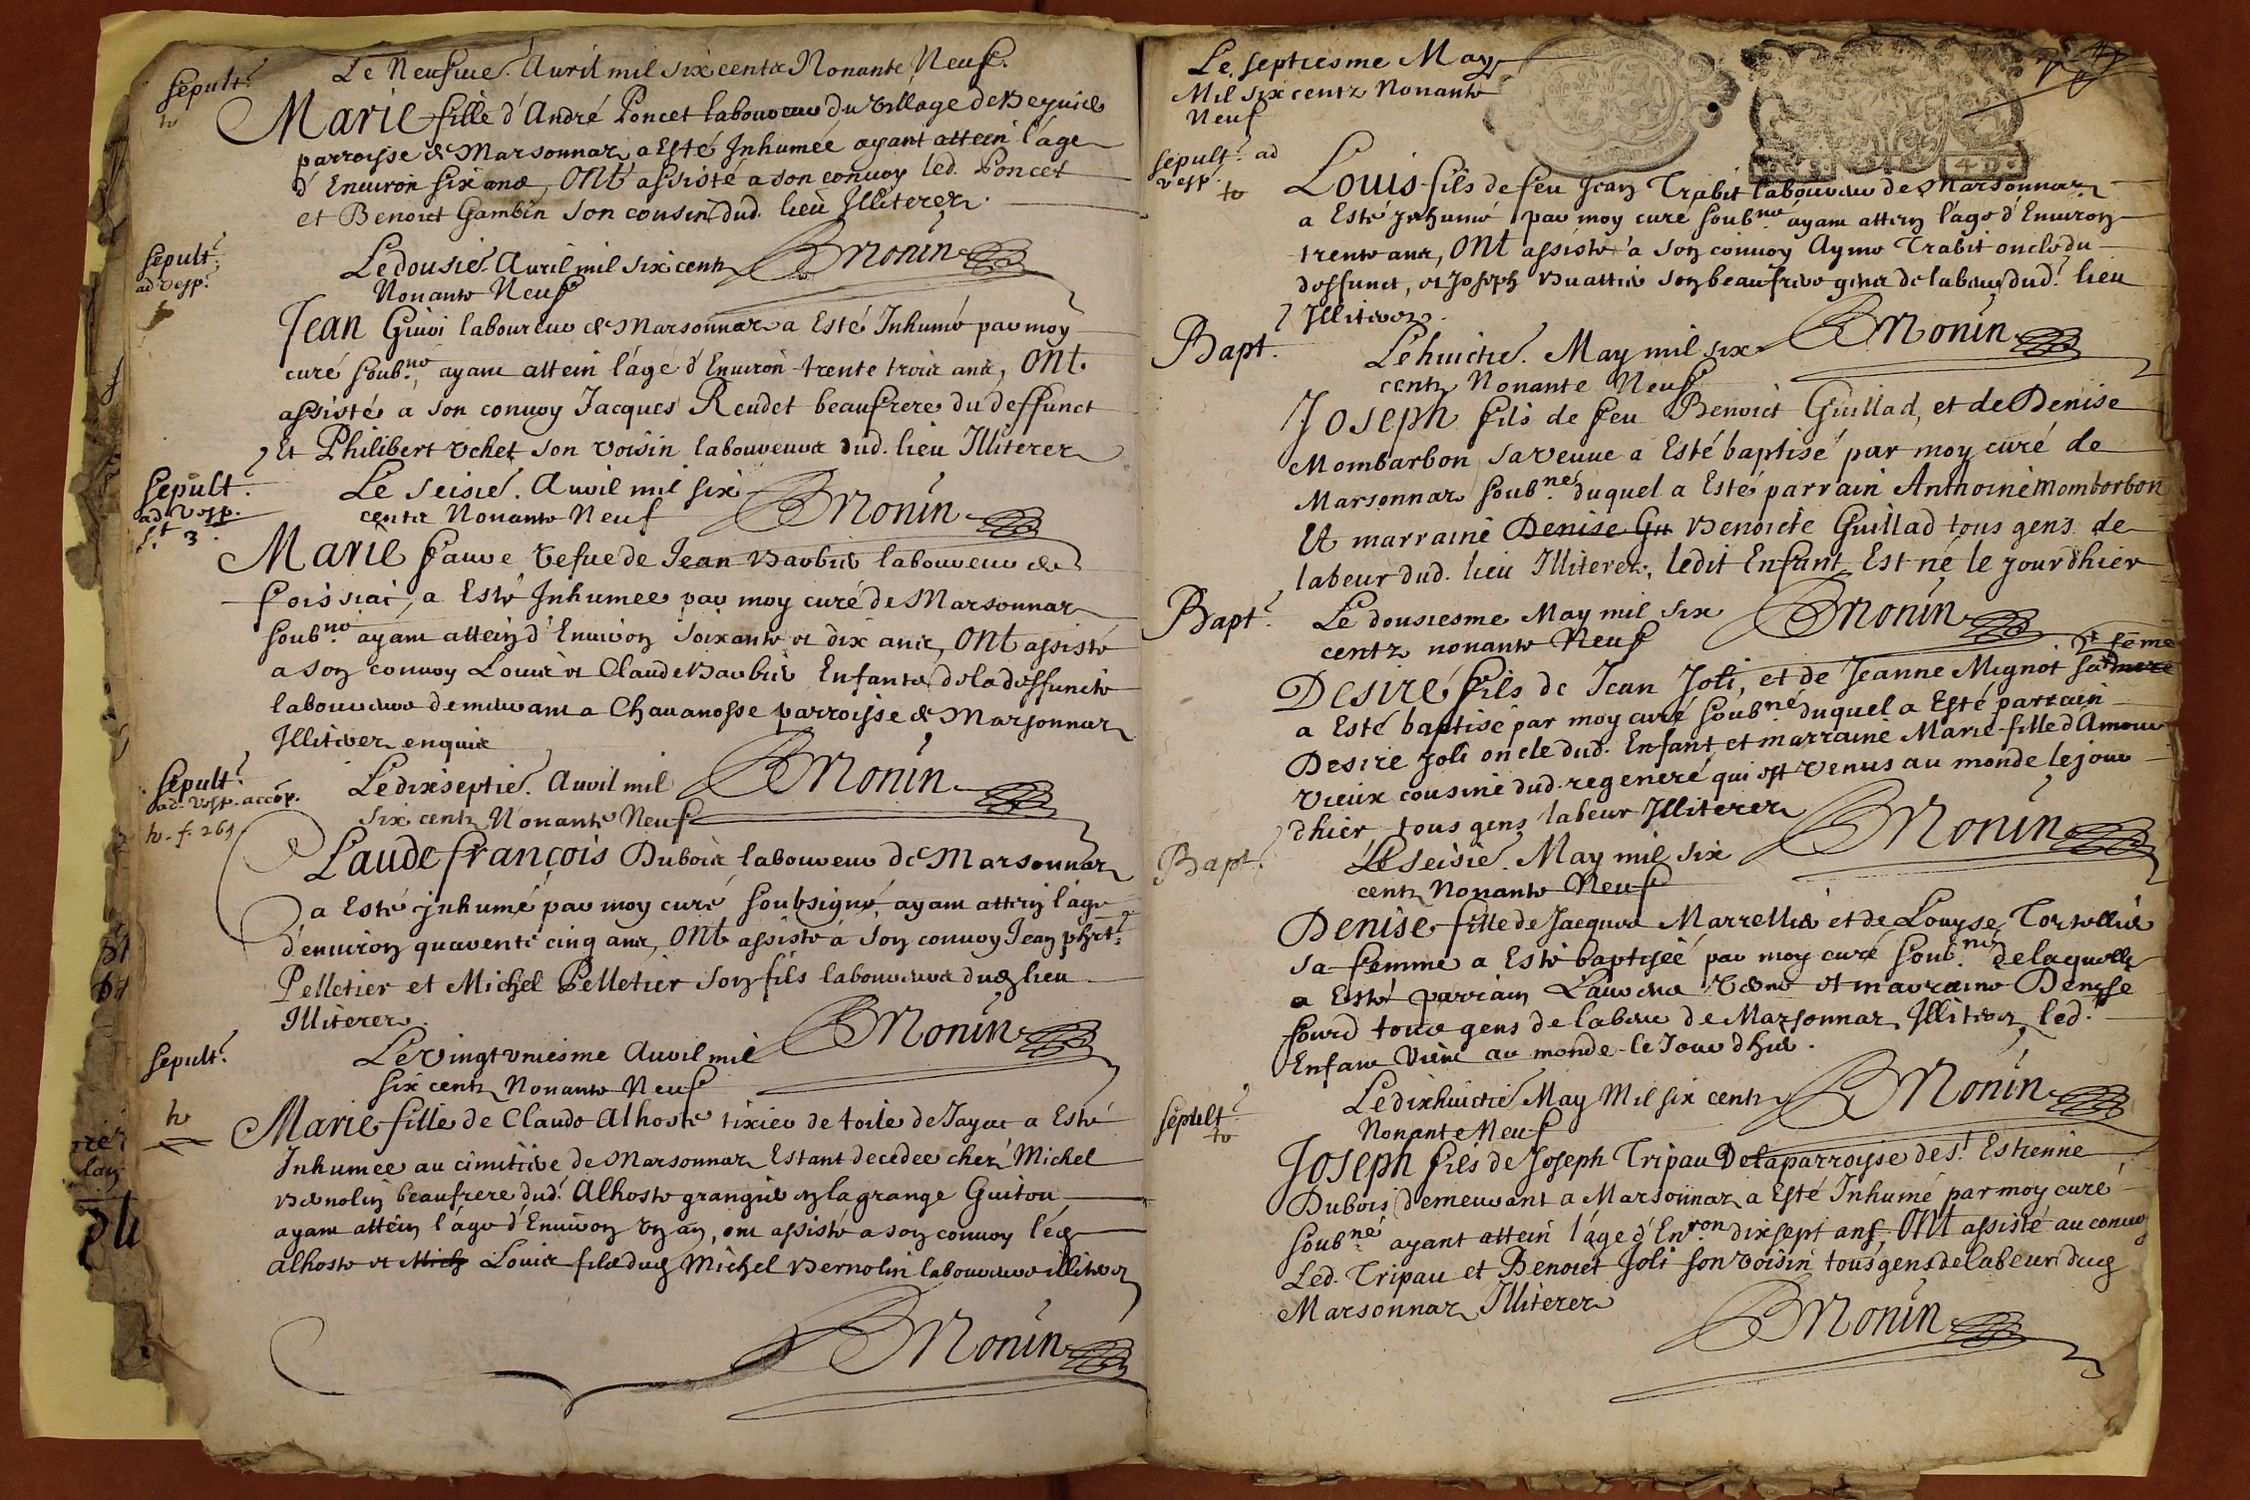 Sepult.e
Le Neufuie. Auril mil six centz Nonante Neuf.
Marie fille d'André Poncet laboureur du village de
parroisse de Marsonnaz a Esté Inhumée ayant attein l'age
d'Enuiron six ans, Ont assisté a son conuoy led. Poncet
et Benoict Gambin son cousin dud. lieu Illiterez.
BMonin
Sepult.e
ad vesp.
Le dousié. Auril mil six centz
Nonante Neuf
Jean Giuoi laboureur de Marsonnaz a Esté Inhumé par moy
curé soub.né, ayant attein l'age d'Enuiron trente trois ans, Ont
assistés a son conuoy Jacques Reudet beaufrere du deffunct
Et Philibert Vchet son voisin laboureurs dud. lieu Illiterez
BMonin
Sepult.e
ad vesp.
s.t 3
Le seisié. Auril mil six
centz Nonante Neuf
Marie fauure vefue de Jean Barbier laboureur de
foissiac, a Esté Inhumee par moy curé de Marsonnaz
soub.né ayant attein d'Enuiron soixante et dix ans, Ont assisté
a son conuoy Louis et Claude Barbier Enfants de la deffuncte
laboureurs demeurant a Chauanosse parroisse de Marsonnaz
Illiterez enquis
BMonin
Sepult.e
ad vesp. accõp.
to. f. 269
Le dixseptié. Auril mil
six centz Nonante Neuf
Claude françois Dubois laboureur de Marsonnaz
a Esté inhumé par moy curé soubsigné, ayant attein l'age
d'enuiron quarente cinq ans, Ont assisté a son conuoy Jean
Pelletier et Michel Pelletier son fils laboureurs dud. lieu
Illiterez
BMonin
Sepult.e
to
Le Vingt vniesme Auril mil
six centz Nonante Neuf
Marie fille de Claude Alhoste tixier de toile de Jayac a Esté
Inhumée au cimitiere de Marsonnaz Estant decedee chez Michel
Bernolin beaufrere dud. Alhoste grangier en la grange Guitou
ayant attein l'age d'Enuiron vn an, ont assisté a son conuoy led.
Alhoste et Mich Louis fils dud. Michel Bernolin laboureurs illiterez
BMonin
Le septiesme May
Mil six centz Nonante
Neuf
Sepult.e ad
vesp.
to
Louis fils de feu Jean Trabit laboureur de Marsonnaz
a Esté Inhumé par moy curé soub.né ayant attein l'age d'Enuiron
trente ans, Ont assisté a son conuoy Ayme Trabit oncle du
deffunct, et Joseph Buattier son beaufrere gens de labeur dud. lieu
Illiterez.
BMonin
Bapt.
Le huictié. May mil six
centz Nonante Neuf
Joseph fils de feu Benoict Guillad, et de Denise
Mombarbon sa veuue a Esté baptisé par moy curé de
Marsonnaz soub.né duquel a Esté parrain Anthoine Mombarbon
Et marraine Denise Gu Benoicte Guillad tous gens de
labeur dud. lieu Illiterez, ledit Enfant Est né le jourdhier
BMonin
Bapt.e
Le dousiesme May mil six
centz nonante Neuf
Desiré fils de Jean Joli, et de Jeanne Mignot sa mere
feme
a Esté baptisé par moy curé soub.né duquel a Esté parrain
Desiré Joli oncle dud. Enfant, et marraine Marie fille d'Amour
Vieux cousine dud. regeneré qui est venus au monde le jour
dhier tous gens labeur Illiterez
BMonin
Bapt.
Le seisié. May mil six
centz Nonante Neuf
Denise fille de Jacques Marrellier et de Louyse Tortellier
sa femme a Esté baptisée par moy curé soub.né de laquelle
a Esté parrain et marraine Denyse
fourd tous gens de labeur de Marsonnaz Illiterez, led.
Enfant Vient au monde le Jour dhier.
BMonin
Sepult.e
to
Le dixhuictié May Mil six centz
Nonante Neuf
Joseph fils de Joseph Tripau De la parroisse de s.t Estienne
Dubois demeurant a Marsonnaz a Esté Inhumé par moy curé
soub.né ayant attein l'age d'En.ron dix sept ans, Ont assisté au conuoy
Led. Tripau et Benoict Joli son voisin tous gens de labeur dud.
Marsonnaz Illiterez
BMonin